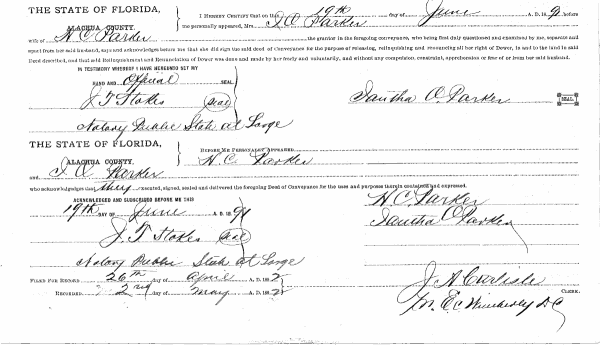 THE STATE OF FLORIDA,
ALACHUA COUNTY.
I HEREBY CERTIFY that on this 19th day of June A.D. 189 before
me personally appeared, Mrs. I O Parker
wife of H C Parker the grantor in the foregoing conveyance, who being first duly questioned and examined by me, separate and
apart from her said husband, says and acknowledges before me that she did sign the said deed of Conveyance for the purpose of releasing, relinquishing and renouncing all her right of Dower, in and to the land in said
Deed described, and that said Relinquishment and Renunciation of Dower was done and made by her freely and voluntarily, and without any compulsion, constraint, apprehension or fear of or from her said husband.
IN TESTIMONY WHEREOF I HAVE HEREUNTO SET MY
HAND AND Official SEAL
J T Stokes Seal
Iantha O. Parker SEAL.
Notary Public State at Large
THE STATE OF FLORIDA,
ALACHUA COUNTY.
BEFORE ME PERSONALLY APPEARED
H. C. Parker
and I O Parker
who acknowledges that they executed, signed, sealed and delivered the foregoing Deed of Conveyance for the uses and purposes therein contained and expressed.
ACKNOWLEDGED AND SUBSCRIBED BEFORE ME THIS
H C Parker
19th DAY OF June A. D. 1891
Iantha O Parker
J. T Stokes Seal
Notary Public State at Large
FILED FOR RECORD 26th day of April A. D. 1892
J A Carlisle
CLERK.
RECORDED 2nd day of May A. D. 1892
M. E. Wimberly D C